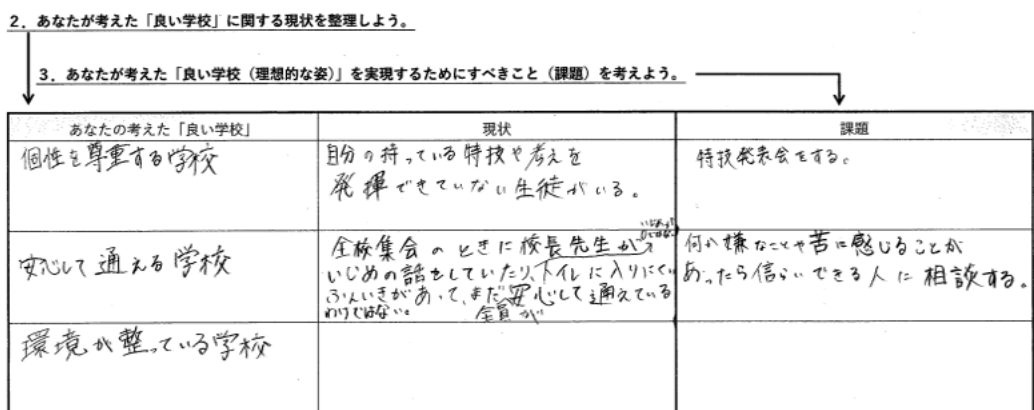 2．あなたが考えた「良い学校」に関する現状を整理しよう。
3．あなたが考えた「良い学校（理想的な姿）」を実現するためにすべきこと（課題）を考えよう。
あなたの考えた「良い学校」
現状
課題
個性を尊重する学校
自分の持っている特技や考えを
発揮できていない生徒がいる。
特技発表会をする。
安心して通える学校
全校集会のときに校長先生が
いじめの話をしていたり、トイレに入りにくい
ふんいきがあって、まだ安心して通えている
わけではない。
全員が
何か嫌なことや苦に感じることが
あったら信らいできる人に相談する。
環境が整っている学校